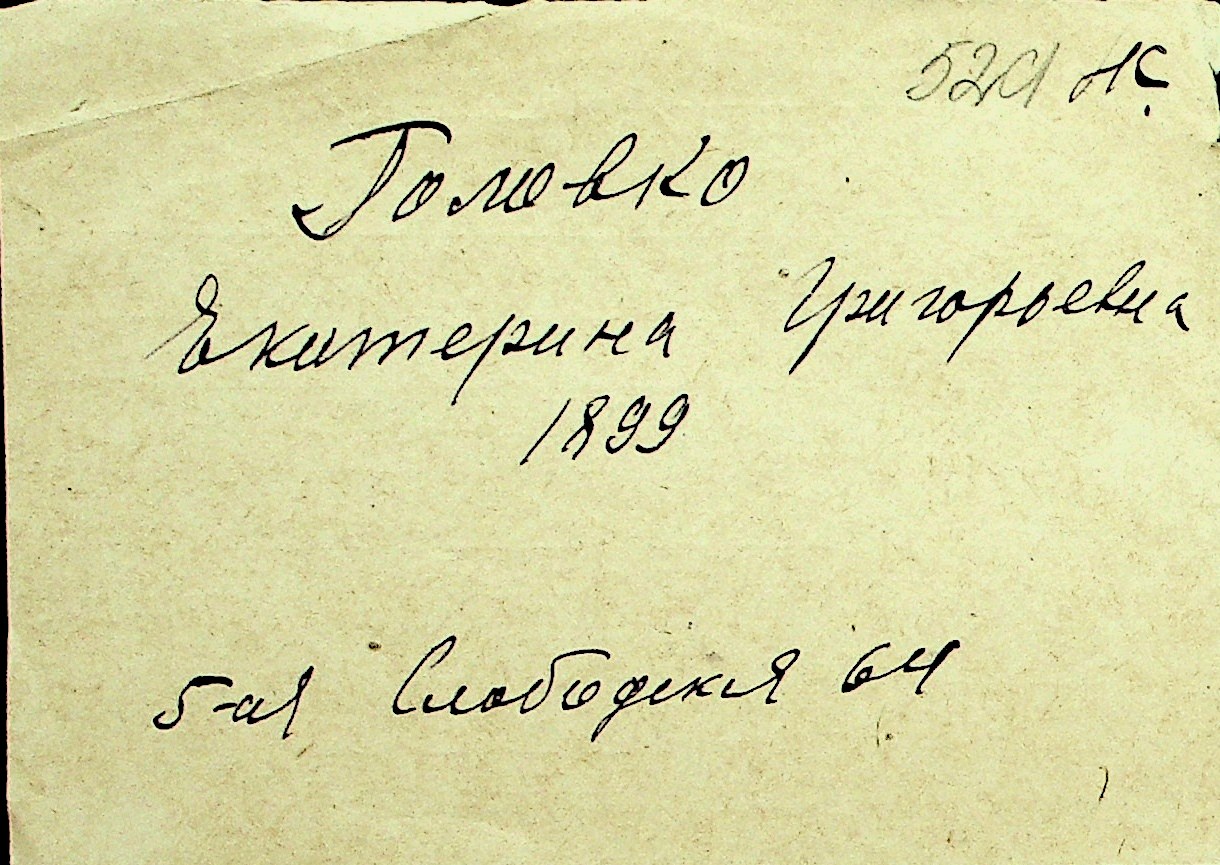 Головко
Екатерина Григорьевна
1899
5-ая Слободская 64